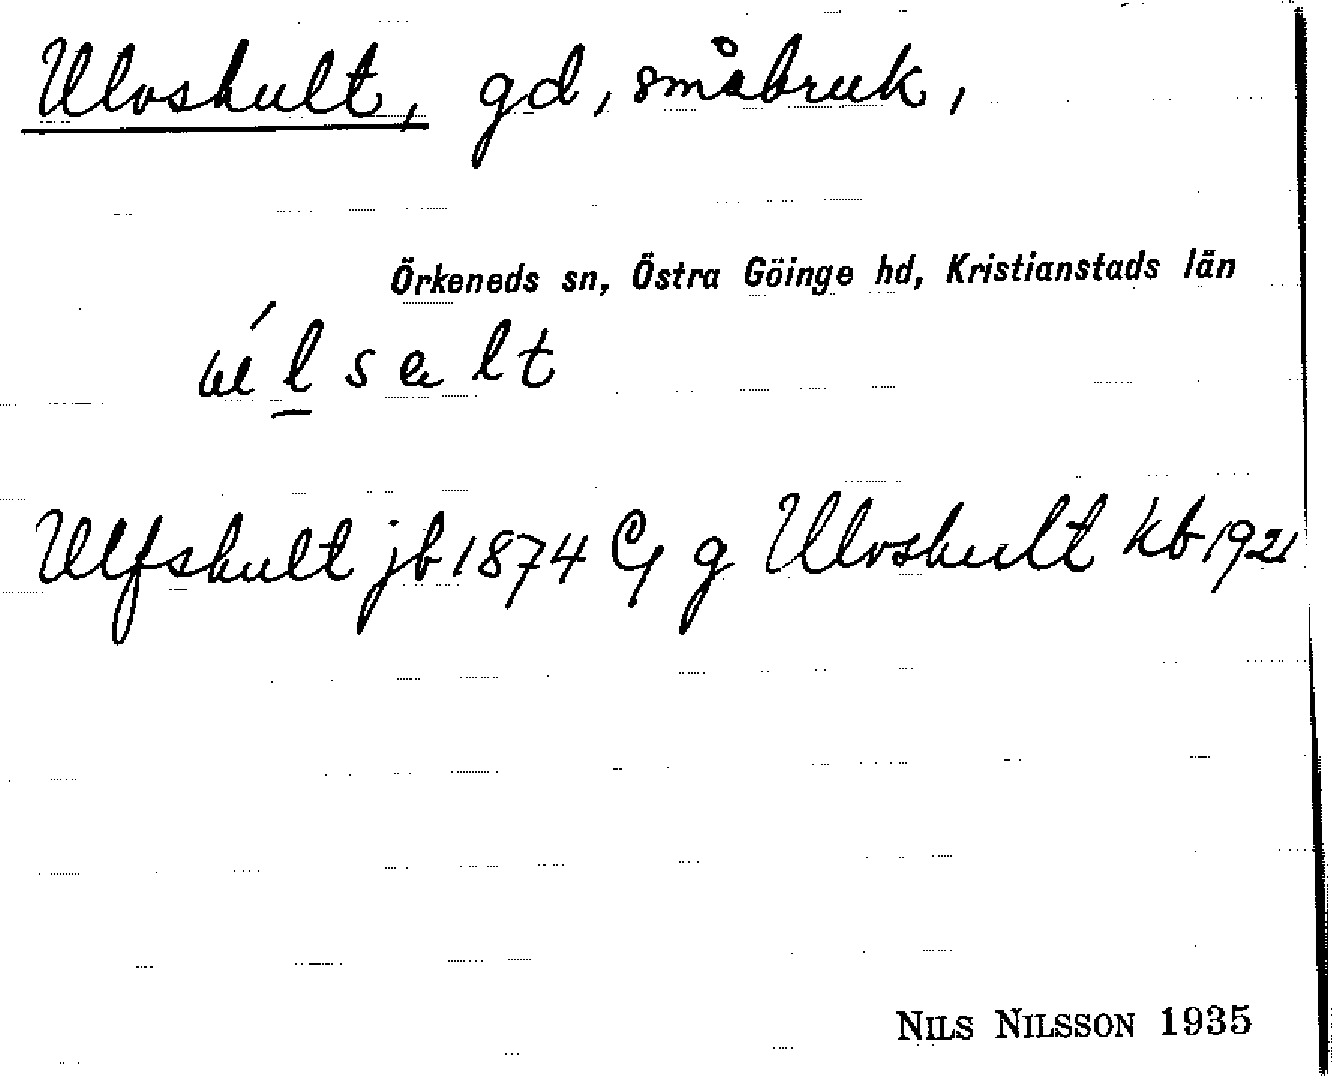 Ulvshult, gd, småbruk,
Örkeneds sn, Östra Göinge hd, Kristianstads län
Ulfshult jb 1874 Cf g Ulvshult kb 1921
NILS NILSSON 1935